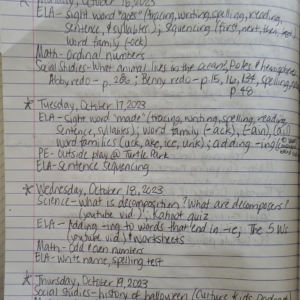 Monday, October 16, 2023
ELA - sight word "does" (tracing, writing, spelling, reading,
sentence, & syllables); sequencing (first, next, then,
word family (-ock)
Math - Ordinal numbers
Social Studies - What animal lives on the ocean, Poles & hemisphere
Abby redo - p. 286; Benny redo - p. 15, 16, spelling,
p. 48
* Tuesday, October 17, 2023
ELA - Sight word "made" (tracing, writing, spelling, reading
sentence, syllables); word family (-ack), (-ain),
word families (ack, ake, ice, unk); adding -ing
PE - outside play @ Turtle Park
ELA - sentence sequencing
* Wednesday, October 18, 2023
Science - what is decomposition? What are decomposers?
(youtube vid.), Kahoot quiz
ELA - Adding -ing to words that end in -ie; The 5 Ws
(youtube vid.) & worksheets
Math - odd & even numbers
ELA - write name, spelling test
* Thursday, October 19, 2023
Social Studies - history of halloween (Culture Kids Podcast